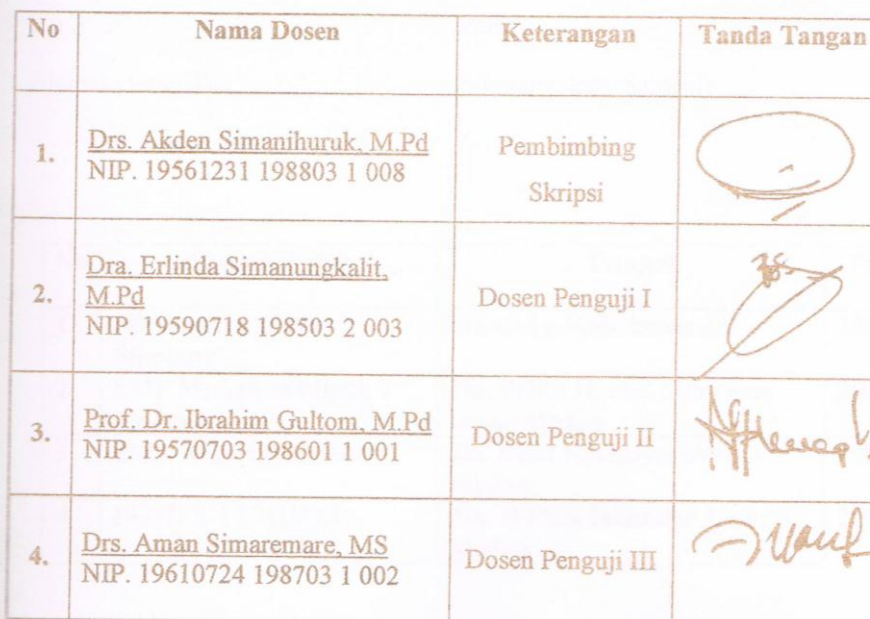 No Nama Dosen Keterangan Tanda Tangan
1. Drs. Akden Simanihuruk, M.Pd
NIP. 19561231 198803 1 008
Pembimbing
Skripsi
2. Dra. Erlinda Simanungkalit,
M.Pd
NIP. 19590718 198503 2 003
Dosen Penguji I
3. Prof. Dr. Ibrahim Gultom, M.Pd
NIP. 19570703 198601 1 001
Dosen Penguji II
4. Drs. Aman Simaremare, MS
NIP. 19610724 198703 1 002
Dosen Penguji III